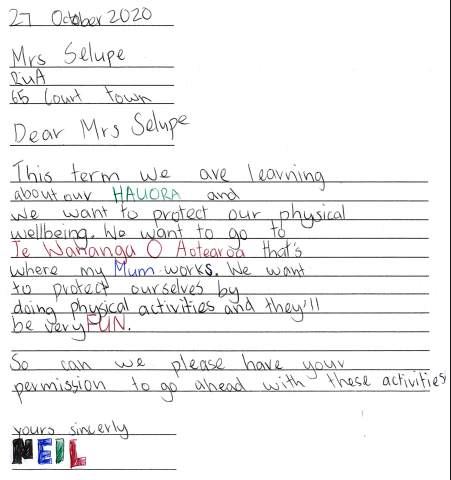 27 October 2020
Mrs Selupe
RuA
65 Court town
Dear Mrs Selupe
This term we are learning
about our HAUORA and
we want to protect our physical
wellbeing. We want to go to
Te Wananga O Aotearoa that's
where my Mum works. We want
to protect ourselves by
doing physical activities and they'll
be very FUN.
So can we please have your
permission to go ahead with these activities
yours sincerly
NEIL